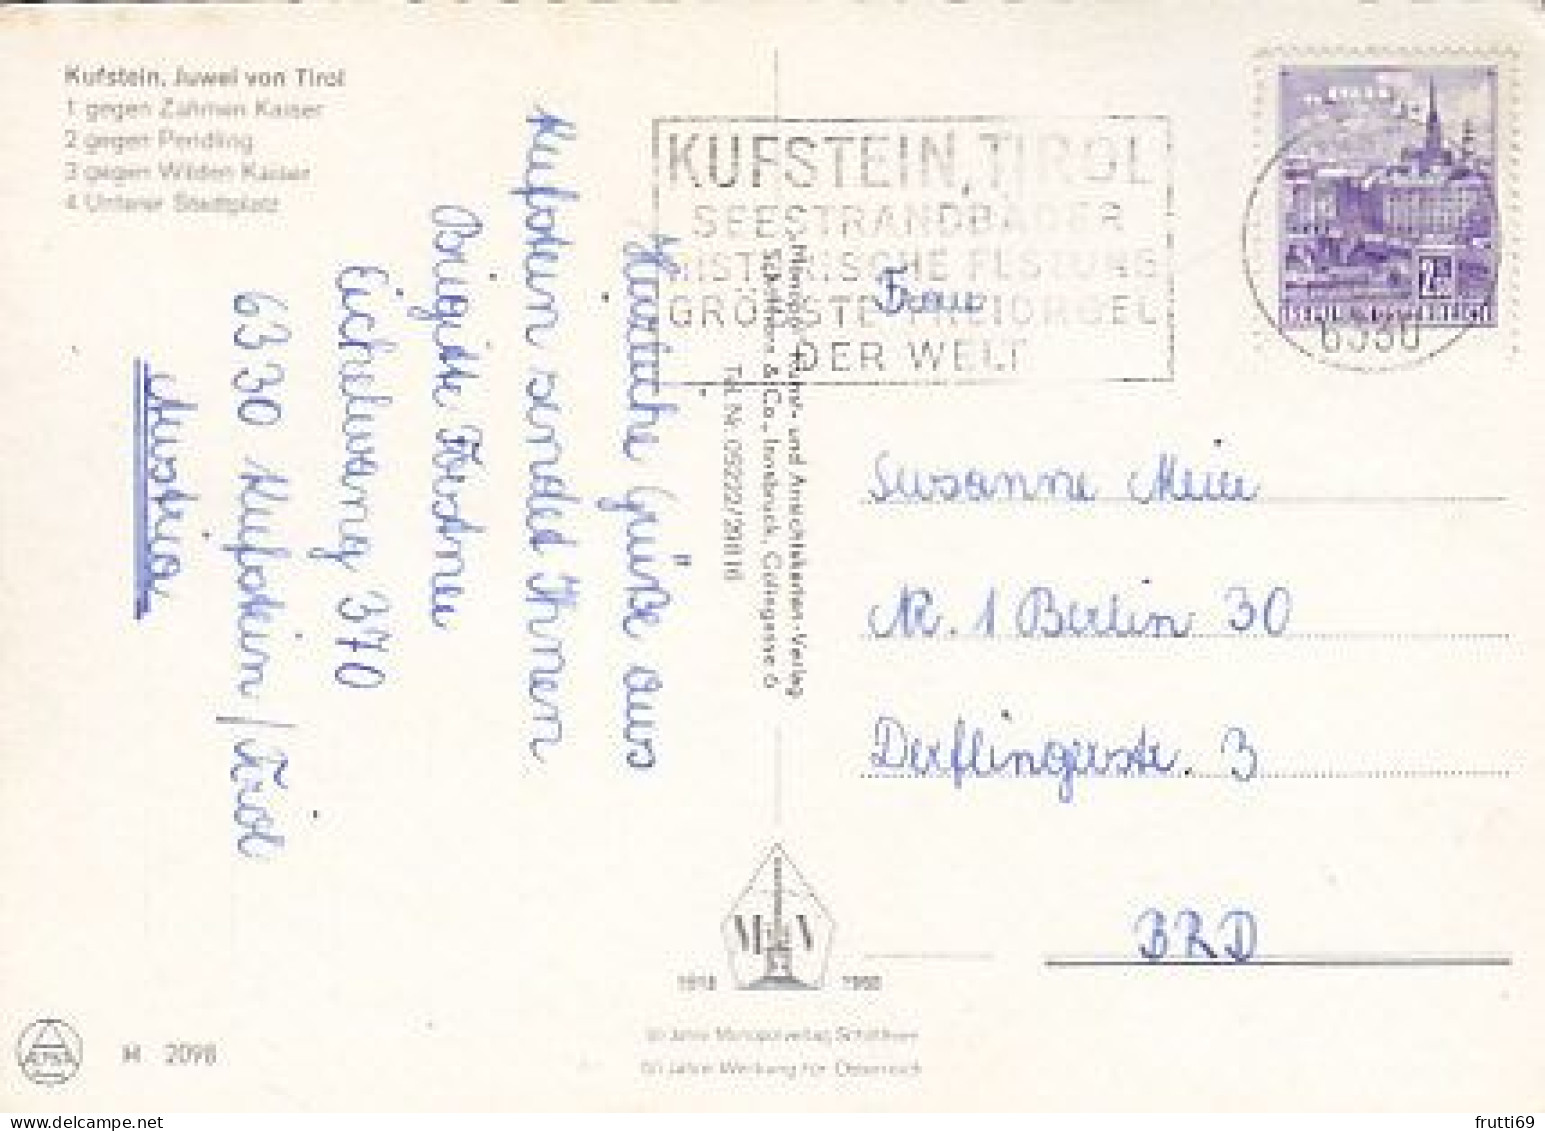 Kufstein, Juwel von Tirol
1 gegen Zahmen Kaiser
2 gegen Pendling
3 gegen Wilden Kaiser
4 Unterer Stadtplatz
KUFSTEIN, TIROL
SEESTRANDBÄDER
HISTORISCHE FESTUNG
GRÖSSTE FREIORGEL
DER WELT
REPUBLIK ÖSTERREICH
6330
Herzliche Grüße aus
Kufstein sendet Ihnen
Brigitte
Eichelwang 370
6330 Kufstein/Tirol
Austria
Kunst- und Ansichtskarten-Verlag
& Co., Innsbruck, Colingasse 6
Tel. Nr. 05222/29116
Frau
Susanne Meier
Nr. 1 Berlin 30
Derflingerstr. 3
BRD
1918 1968
50 Jahre Monopolverlag Schöllhorn
50 Jahre Werbung für Österreich
H 2098
frutti69